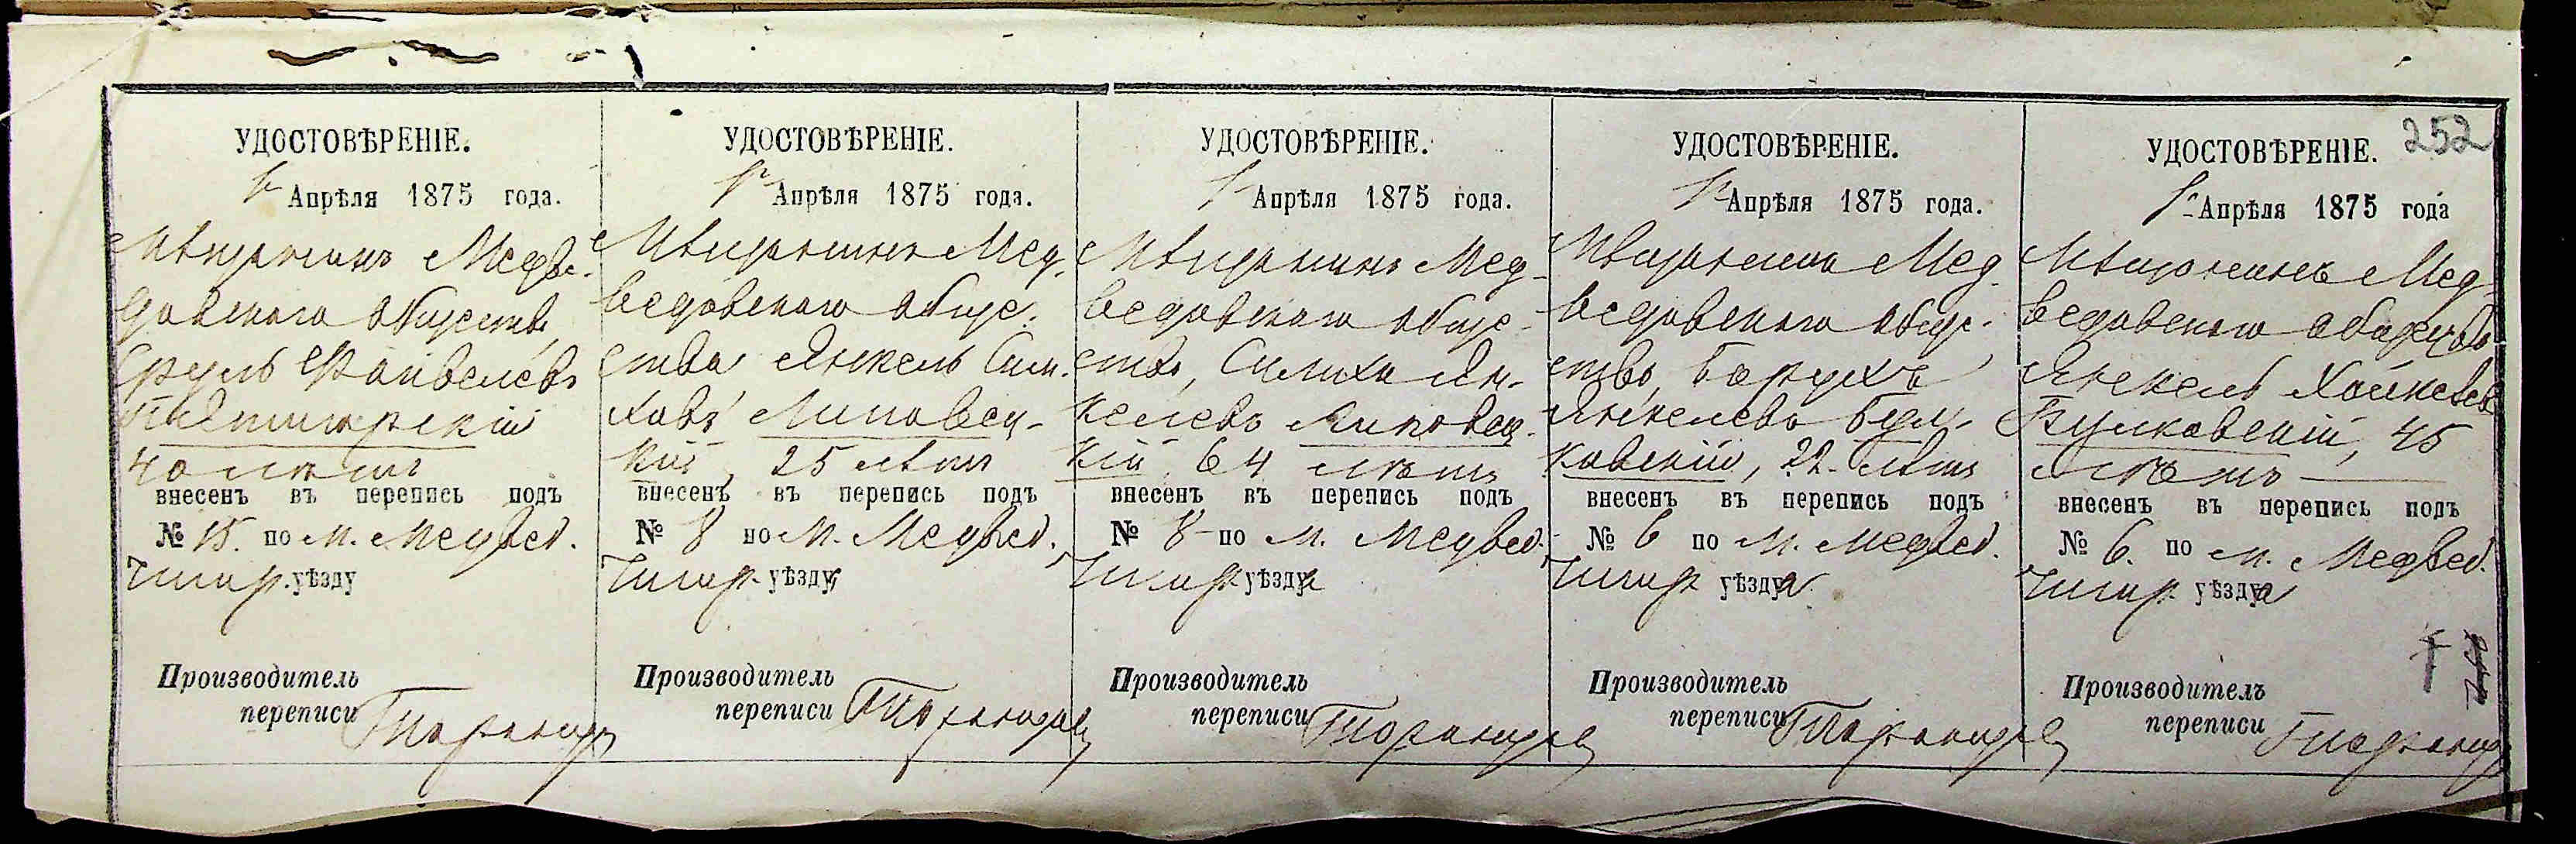 252
УДОСТОВѢРЕНІЕ.
1 Апрѣля 1875 года.
Мѣщанинъ Медве-
довскаго общества,
Сруль Файвелевъ
Пятигорскій
40 лѣтъ
внесенъ въ перепись подъ
№ 15. по м. Медвед.
Чигир. уѣзду
Производитель
переписи
УДОСТОВѢРЕНІЕ.
1 Апрѣля 1875 года.
Мѣщанинъ Мед-
ведовскаго обще-
ства Янкель Сим-
ховъ Липовец-
кій, 25 лѣтъ
внесенъ въ перепись подъ
№ 8 по м. Медвед.
Чигир. уѣзду
Производитель
переписи
УДОСТОВѢРЕНІЕ.
1 Апрѣля 1875 года.
Мѣщанинъ Мед-
ведовскаго обще-
ства, Симха Ян-
келевъ Липовец-
кій 64 лѣтъ
внесенъ въ перепись подъ
№ 8 по м. Медвед.
Чигир уѣзда
Производитель
переписи
УДОСТОВѢРЕНІЕ.
1 Апрѣля 1875 года.
Мѣщанинъ Мед-
ведовскаго обще-
ства, Борухъ
Янкелевъ Бул-
ковскій, 22 лѣтъ
внесенъ въ перепись подъ
№ 6 по м. Медвед.
Чигир уѣзда
Производитель
переписи
УДОСТОВѢРЕНІЕ.
1 Апрѣля 1875 года
Мѣщанинъ Мед-
ведовскаго общества
Янкель
Булковскій, 45
лѣтъ
внесенъ въ перепись подъ
№ 6. по м. Медвед.
Чигир. уѣзда
Производитель
переписи